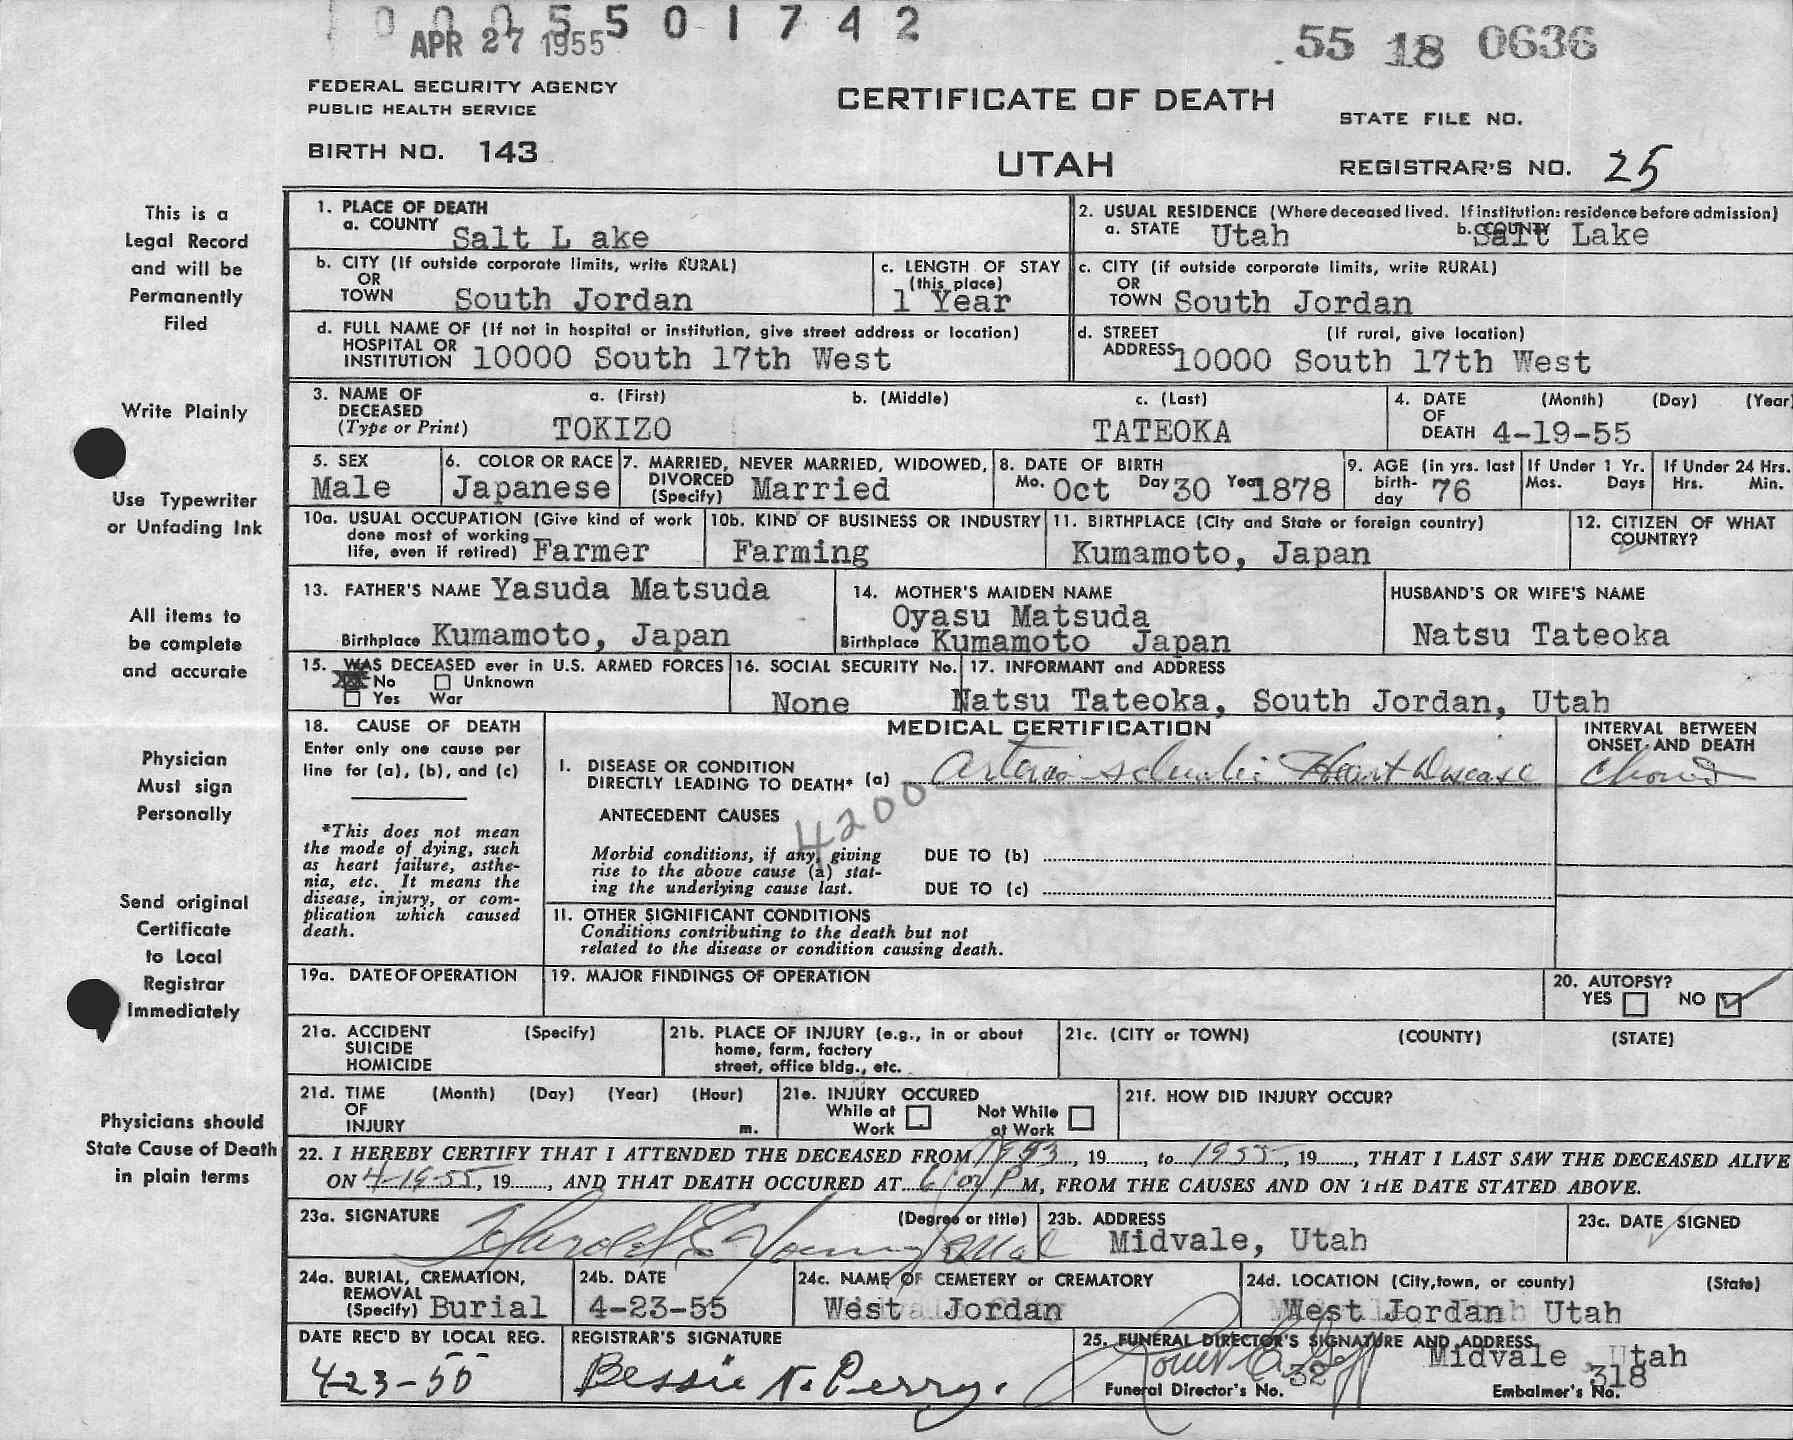 0005501742
APR 27 1955
55 18 0636
FEDERAL SECURITY AGENCY
PUBLIC HEALTH SERVICE
CERTIFICATE OF DEATH
STATE FILE NO.
BIRTH NO. 143
UTAH
REGISTRAR'S NO. 25
This is a
Legal Record
and will be
Permanently
Filed
Write Plainly
Use Typewriter
or Unfading Ink
All items to
be complete
and accurate
Physician
Must sign
Personally
Send original
Certificate
to Local
Registrar
Immediately
Physicians should
State Cause of Death
in plain terms
1. PLACE OF DEATH
a. COUNTY Salt L ake
2. USUAL RESIDENCE (Where deceased lived. If institution: residence before admission)
a. STATE Utah b. COUNTY Salt Lake
b. CITY (If outside corporate limits, write RURAL)
OR
TOWN South Jordan
c. LENGTH OF STAY
(this place)
1 Year
c. CITY (if outside corporate limits, write RURAL)
OR
TOWN South Jordan
d. FULL NAME OF (If not in hospital or institution, give street address or location)
HOSPITAL OR
INSTITUTION 10000 South 17th West
d. STREET (If rural, give location)
ADDRESS 10000 South 17th West
3. NAME OF a. (First) b. (Middle) c. (Last)
DECEASED
(Type or Print) TOKIZO TATEOKA
4. DATE (Month) (Day) (Year)
OF
DEATH 4-19-55
5. SEX
Male
6. COLOR OR RACE
Japanese
7. MARRIED, NEVER MARRIED, WIDOWED,
DIVORCED
(Specify) Married
8. DATE OF BIRTH
Mo. Oct Day 30 Year 1878
9. AGE (in yrs. last
birth-
day 76
If Under 1 Yr.
Mos. Days
If Under 24 Hrs.
Hrs. Min.
10a. USUAL OCCUPATION (Give kind of work
done most of working
life, even if retired) Farmer
10b. KIND OF BUSINESS OR INDUSTRY
Farming
11. BIRTHPLACE (City and State or foreign country)
Kumamoto, Japan
12. CITIZEN OF WHAT
COUNTRY?
13. FATHER'S NAME Yasuda Matsuda
Birthplace Kumamoto, Japan
14. MOTHER'S MAIDEN NAME
Oyasu Matsuda
Birthplace Kumamoto Japan
HUSBAND'S OR WIFE'S NAME
Natsu Tateoka
15. WAS DECEASED ever in U.S. ARMED FORCES
No Unknown
Yes War
16. SOCIAL SECURITY No.
None
17. INFORMANT and ADDRESS
Natsu Tateoka, South Jordan, Utah
18. CAUSE OF DEATH
Enter only one cause per
line for (a), (b), and (c)
*This does not mean
the mode of dying, such
as heart failure, asthe-
nia, etc. It means the
disease, injury, or com-
plication which caused
death.
MEDICAL CERTIFICATION
I. DISEASE OR CONDITION
DIRECTLY LEADING TO DEATH* (a) Arteriosclerotic Heart Disease
INTERVAL BETWEEN
ONSET AND DEATH
Chronic
4200
ANTECEDENT CAUSES
Morbid conditions, if any, giving
rise to the above cause (a) stat-
ing the underlying cause last.
DUE TO (b)
DUE TO (c)
II. OTHER SIGNIFICANT CONDITIONS
Conditions contributing to the death but not
related to the disease or condition causing death.
19a. DATE OF OPERATION
19. MAJOR FINDINGS OF OPERATION
20. AUTOPSY?
YES NO
21a. ACCIDENT (Specify)
SUICIDE
HOMICIDE
21b. PLACE OF INJURY (e.g., in or about
home, farm, factory
street, office bldg., etc.
21c. (CITY or TOWN) (COUNTY) (STATE)
21d. TIME (Month) (Day) (Year) (Hour)
OF
INJURY m.
21e. INJURY OCCURED
While at Not While
Work at Work
21f. HOW DID INJURY OCCUR?
22. I HEREBY CERTIFY THAT I ATTENDED THE DECEASED FROM 1953, 19....., to 1955, 19....., THAT I LAST SAW THE DECEASED ALIVE
ON 4-19-55, 19....., AND THAT DEATH OCCURED AT P M, FROM THE CAUSES AND ON THE DATE STATED ABOVE.
23a. SIGNATURE (Degree or title)
Harold E. Young
23b. ADDRESS
Midvale, Utah
23c. DATE SIGNED
24a. BURIAL, CREMATION,
REMOVAL
(Specify) Burial
24b. DATE
4-23-55
24c. NAME OF CEMETERY or CREMATORY
West Jordan
24d. LOCATION (City, town, or county) (State)
West Jordan Utah
DATE REC'D BY LOCAL REG.
4-23-55
REGISTRAR'S SIGNATURE
Bessie N. Perry.
25. FUNERAL DIRECTOR'S SIGNATURE AND ADDRESS
Midvale, Utah
Funeral Director's No. 32
Embalmer's No. 318